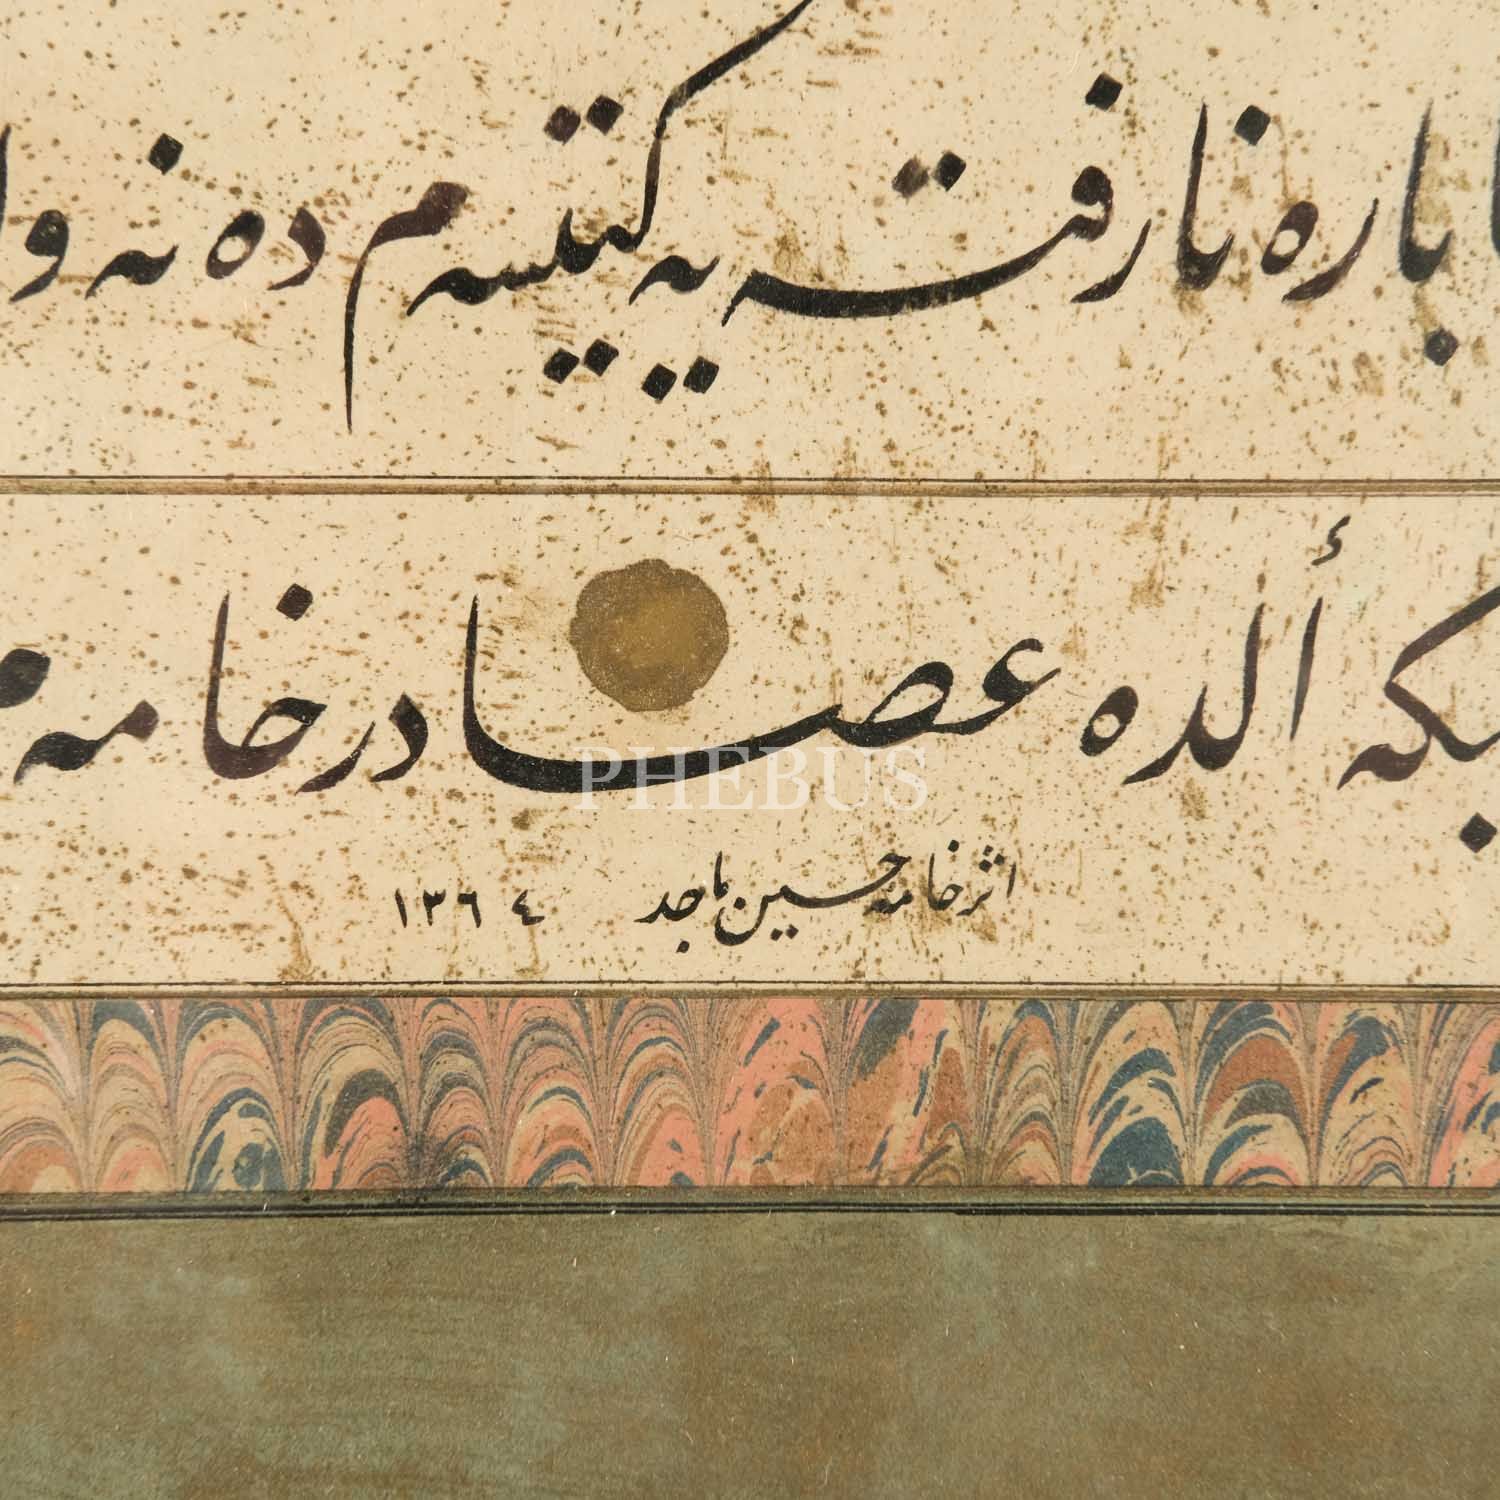 باره نارفته يه كيتسه م ده نه
ألده عصادر خامه م
PHEBUS
اثر خامه حسين ماجد ١٣٦٤